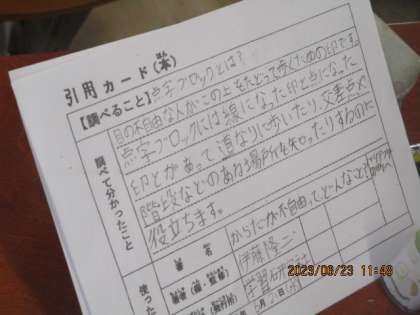 引用カード(本)
ほん
【調べること】点字ブロックとは?
調べて分かったこと
目の不自由な人がこの上をたどって歩くための印です。
点字ブロックには線になった印と点になった
印とがあって、道なりに歩いたり、交差点や
階段などのある場所を知ったりするのに
役立ちます。
使った
書名
からだが不自由ってどんなこと?
伊藤隆二
学習研究社
年6月2日(水)
2023/06/23 11:48